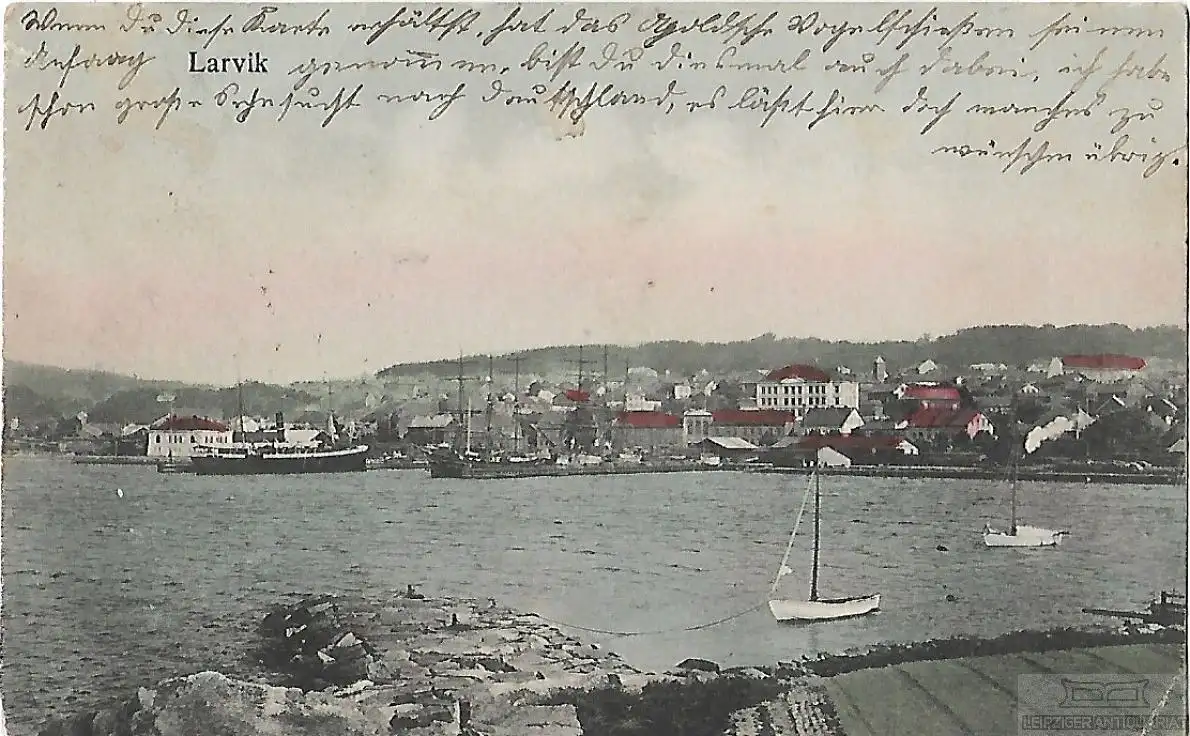 Wenn Du diese Karte erhältst, hat das Apoldsche Vogelschießen seinen
Anfang genommen, bist Du diesmal auch dabei, ich habe
Larvik
schon große Sehnsucht nach Deutschland, es läßt hier doch manches zu
wünschen übrig.
LEIPZIGER ANTIQUARIAT